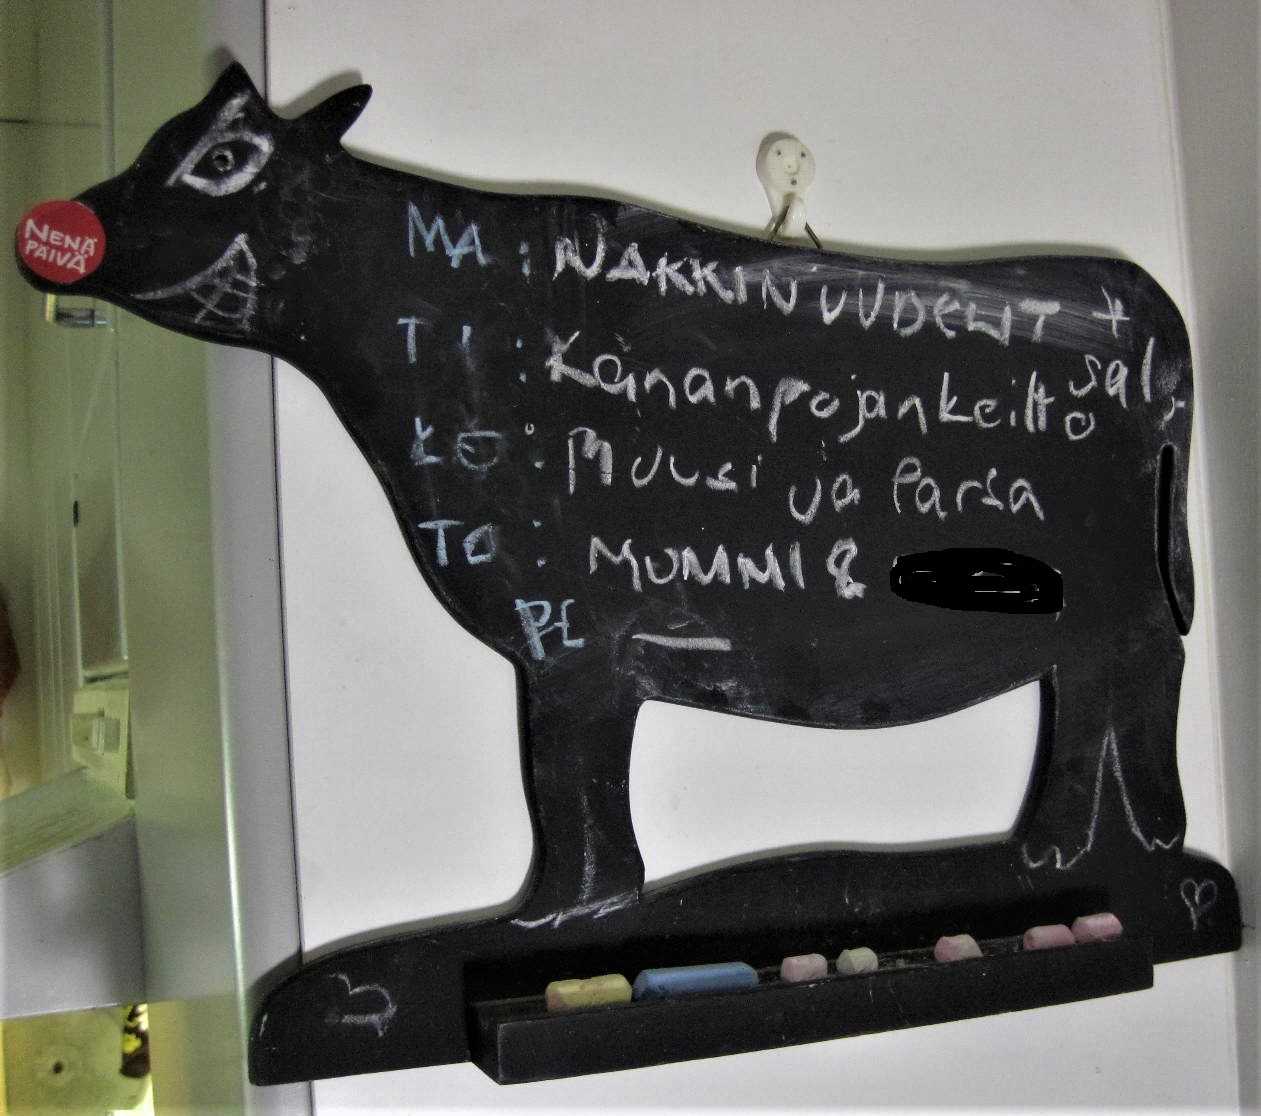 NENÄ
PÄIVÄ
MA: NAKKINUUDELIT +
sal.
TI: Kananpojankeitto
KE: Muusi ja Parsa
TO: MUMMI &
PE —